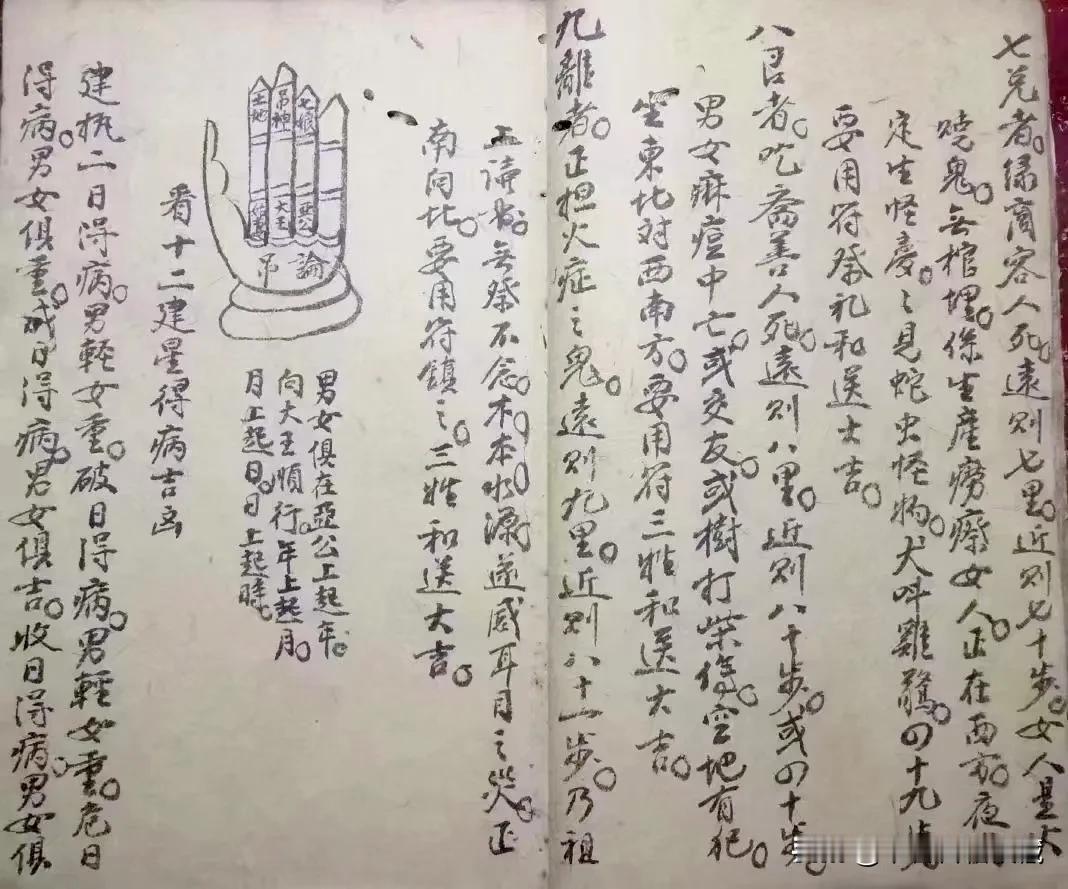 七兌者。綠商客人死。遠則七里。近則七十步。女人是火
燒鬼。無棺埋。係生產癆瘵女人。正在西方。夜
定生怪憂。之見蛇虫怪物。犬叫雞驚。四十九步
要用符祭礼和送大吉。
八艮者。吃斎善人死。遠則八里。近則八十步。或四十步。
男女痳痘中亡。或交友或樹打柴傷。空地有犯。
坐東北对西南方。要用符三牲和送大吉。
九離者。正担火症之鬼。遠則九里。近則八十一步。乃祖
上讀書。無祭不念。木本水源。遂感耳目之災。正
南向北。要用符鎮之。三牲和送大吉。
七娘
吊神
土地
大王
論
吊
男女俱在亞公上起年。
向大王順行。年上起月。
月上起日。日上起時。
看十二建星得病吉凶
建执二日得病。男輕女重。破日得病。男輕女重。危日
得病。男女俱重。成日得病。男女俱吉。收日得病。男女俱